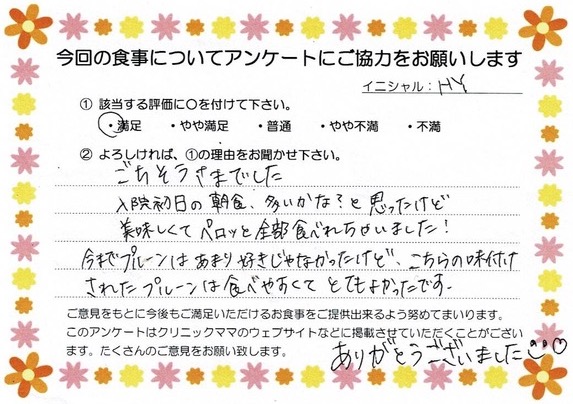 今回の食事についてアンケートにご協力をお願いします
イニシャル：HY
① 該当する評価に○を付けて下さい。
・満足　・やや満足　・普通　・やや不満　・不満
② よろしければ、①の理由をお聞かせ下さい。
ごちそうさまでした
入院初日の朝食、多いかな？と思ったけど
美味しくてペロッと全部食べれちゃいました！
今までプルーンはあまり好きじゃなかったけど、こちらの味付け
されたプルーンは食べやすくてとてもよかったです。
ご意見をもとに今後もご満足いただけるお食事をご提供出来るよう努めてまいります。
このアンケートはクリニックママのウェブサイトなどに掲載させていただくことがござい
ます。たくさんのご意見をお願い致します。
ありがとうございました